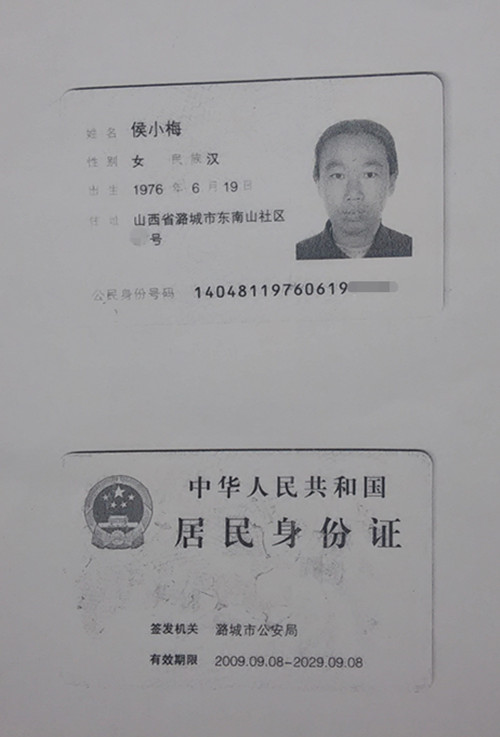 姓名 侯小梅
性别 女 民族 汉
出生 1976 年 6 月 19 日
住址 山西省潞城市东南山社区
号
公民身份号码 14048119760619
中华人民共和国
居民身份证
签发机关 潞城市公安局
有效期限 2009.09.08-2029.09.08